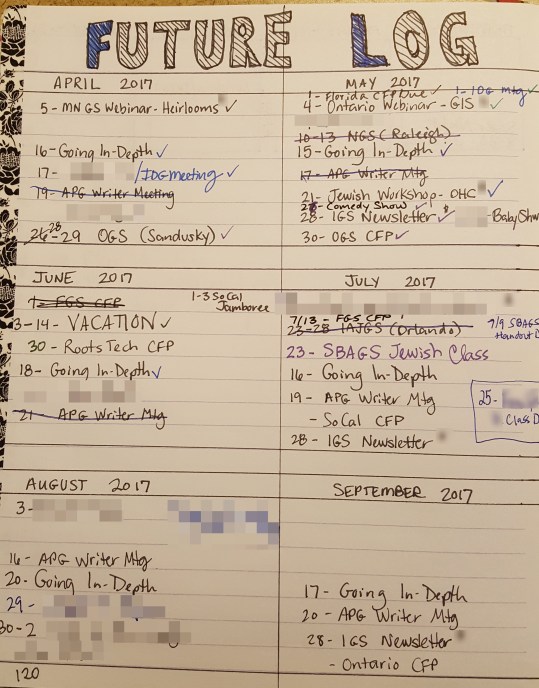 FUTURE LOG
APRIL 2017
5 - MNGS Webinar - Heirlooms ✓
16 - Going In-Depth ✓
17 - / IDG meeting ✓
19 - APG Writer Meeting
26 28 - 29 OGS (Sandusky) ✓
MAY 2017
1 - Florida CFP Due ✓ 1 - IDG mtg ✓
4 - Ontario Webinar - GIS ✓
10-13 NGS (Raleigh)
15 - Going In-Depth ✓
17 - APG Writer Mtg
21 - Jewish Workshop - OHC ✓
Comedy Show ✓
28 - IGS Newsletter ✓ - Baby Show
30 - OGS CFP ✓
JUNE 2017
1 - FGS CFP
1-3 SoCal
Jamboree
3-14 - VACATION ✓
30 - Roots Tech CFP
18 - Going In-Depth ✓
21 - APG Writer Mtg
JULY 2017
7/13 - FGS CFP
23-28 IAJGS (Orlando)
7/9 SBAGS
Handout D
23 - SBAGS Jewish Class
16 - Going In-Depth
19 - APG Writer Mtg
- SoCal CFP
25 -
Class D
28 - IGS Newsletter
AUGUST 2017
3 -
16 - APG Writer Mtg
20 - Going In-Depth
29 -
30 - 2
SEPTEMBER 2017
17 - Going In-Depth
20 - APG Writer Mtg
28 - IGS Newsletter
- Ontario CFP
120